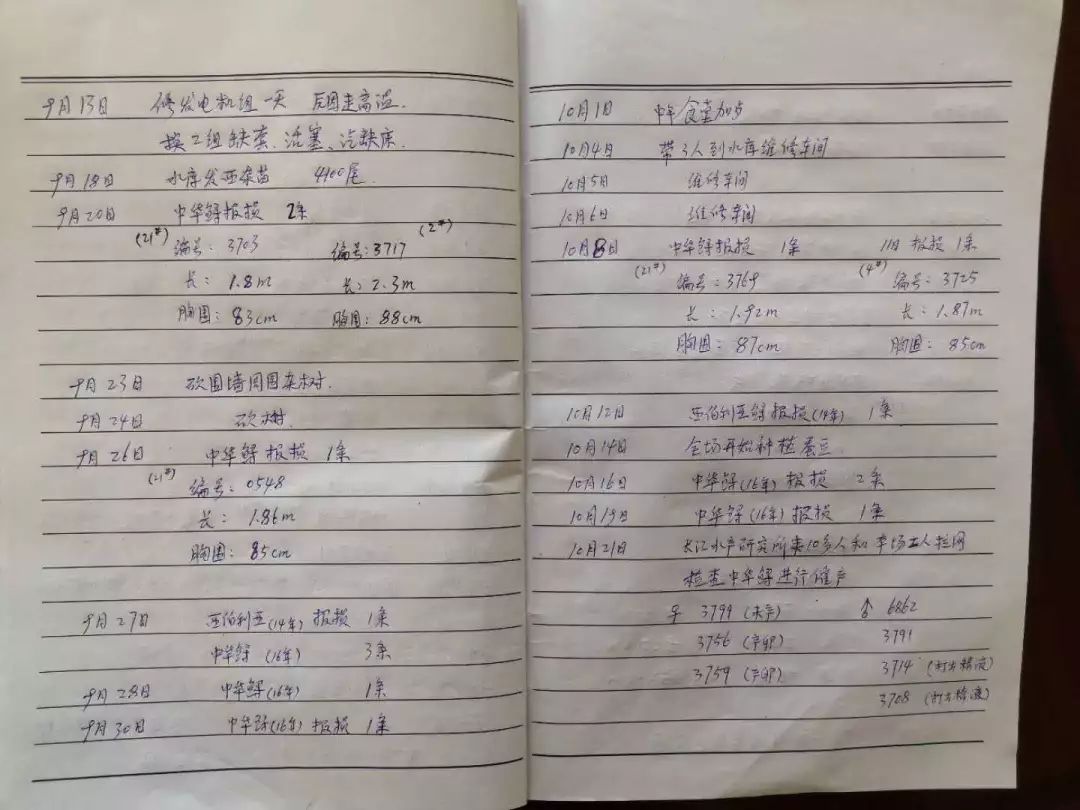 9月13日 修发电机组一天 原因走高温.
换2组缸套、活塞、汽缸床.
9月18日 水库发西杂苗 4100尾.
9月20日 中华鲟报损 2条
(21#) 编号: 3703 (2#) 编号: 3717
长: 1.8m 长: 2.3m
胸围: 83cm 胸围: 88cm
9月23日 砍围墙周围杂树.
9月24日 砍树.
9月26日 中华鲟报损 1条
(21#) 编号: 0548
长: 1.86m
胸围: 85cm
9月27日 西伯利亚(14年)报损 1条
中华鲟(16年) 3条
9月28日 中华鲟(16年) 1条
9月30日 中华鲟(16年)报损 1条
10月1日 中午食堂加步
10月4日 带3人到水库维修车间
10月5日 维修车间
10月6日 维修车间
10月8日 中华鲟报损 1条 11日报损 1条
(21#) 编号: 3769 (4#) 编号: 3725
长: 1.92m 长: 1.87m
胸围: 87cm 胸围: 85cm
10月12日 西伯利亚鲟报损(14年) 1条
10月14日 全场开始种植蚕豆
10月16日 中华鲟(16年)报损 2条
10月19日 中华鲟(16年)报损 1条
10月21日 长江水产研究所来10多人和本场工人拦网
检查中华鲟进行催产
♀ 3799 (未产) ♂ 6862
3756 (产卵) 3791
3759 (产卵) 3714 (打出精液)
3708 (打出精液)